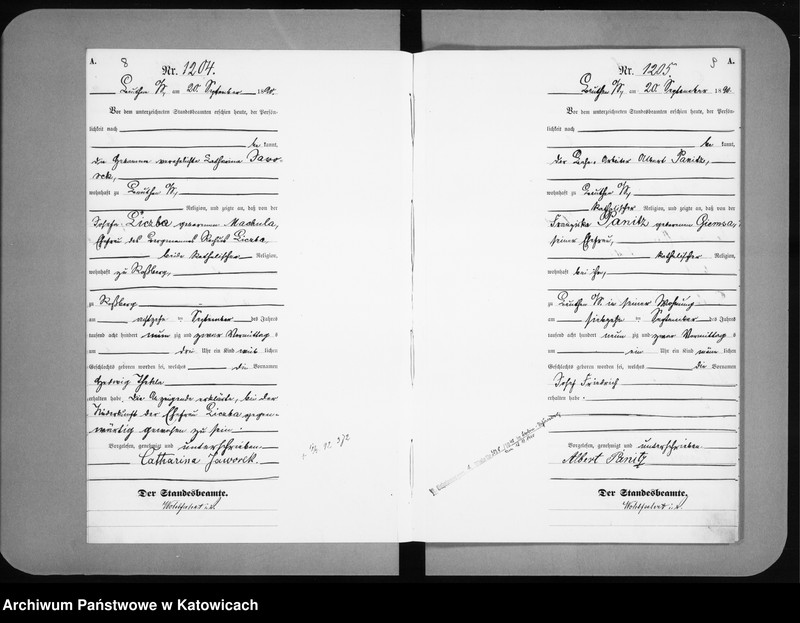 A. 8
Nr. 1204.
Beuthen O/S, am 20. September 1890.
Vor dem unterzeichneten Standesbeamten erschien heute, der Persön-
lichkeit nach
be kannt,
die Hebamme verehelichte Catharina Jawo-
reck,
wohnhaft zu Beuthen O/S,
Religion, und zeigte an, daß von der
Josefa Liczba geborenen Machula,
Ehefrau des Bergmannes Liczba,
beide katholischer Religion,
wohnhaft zu Roßberg,
zu Roßberg
am achtzehn ten September des Jahres
tausend acht hundert neun zig und zwar Vormittags
um drei Uhr ein Kind weib lichen
Geschlechts geboren worden sei, welches die Vornamen
Hedwig Thekla
erhalten habe. Die Anzeigende erklärte, bei der
Niederkunft der Ehefrau Liczba gegen-
wärtig gewesen zu sein.
Vorgelesen, genehmigt und unterschrieben.
Catharina Jaworek.
Der Standesbeamte.
8 A.
Nr. 1205.
Beuthen O/S, am 20. September 1890.
Vor dem unterzeichneten Standesbeamten erschien heute, der Persön-
lichkeit nach
be kannt,
der Arbeiter Albert Panitz,
wohnhaft zu Beuthen O/S,
katholischer Religion, und zeigte an, daß von der
Franziska Panitz geborenen Giemsa,
seiner Ehefrau,
katholischer Religion,
wohnhaft bei ihm,
zu Beuthen O/S. in seiner Wohnung
am siebzehn ten September des Jahres
tausend acht hundert neun zig und zwar Vormittags
um ein Uhr ein Kind männ lichen
Geschlechts geboren worden sei, welches die Vornamen
Josef Friedrich
erhalten habe.
Vorgelesen, genehmigt und unterschrieben
Albert Panitz
Der Standesbeamte.
Archiwum Państwowe w Katowicach